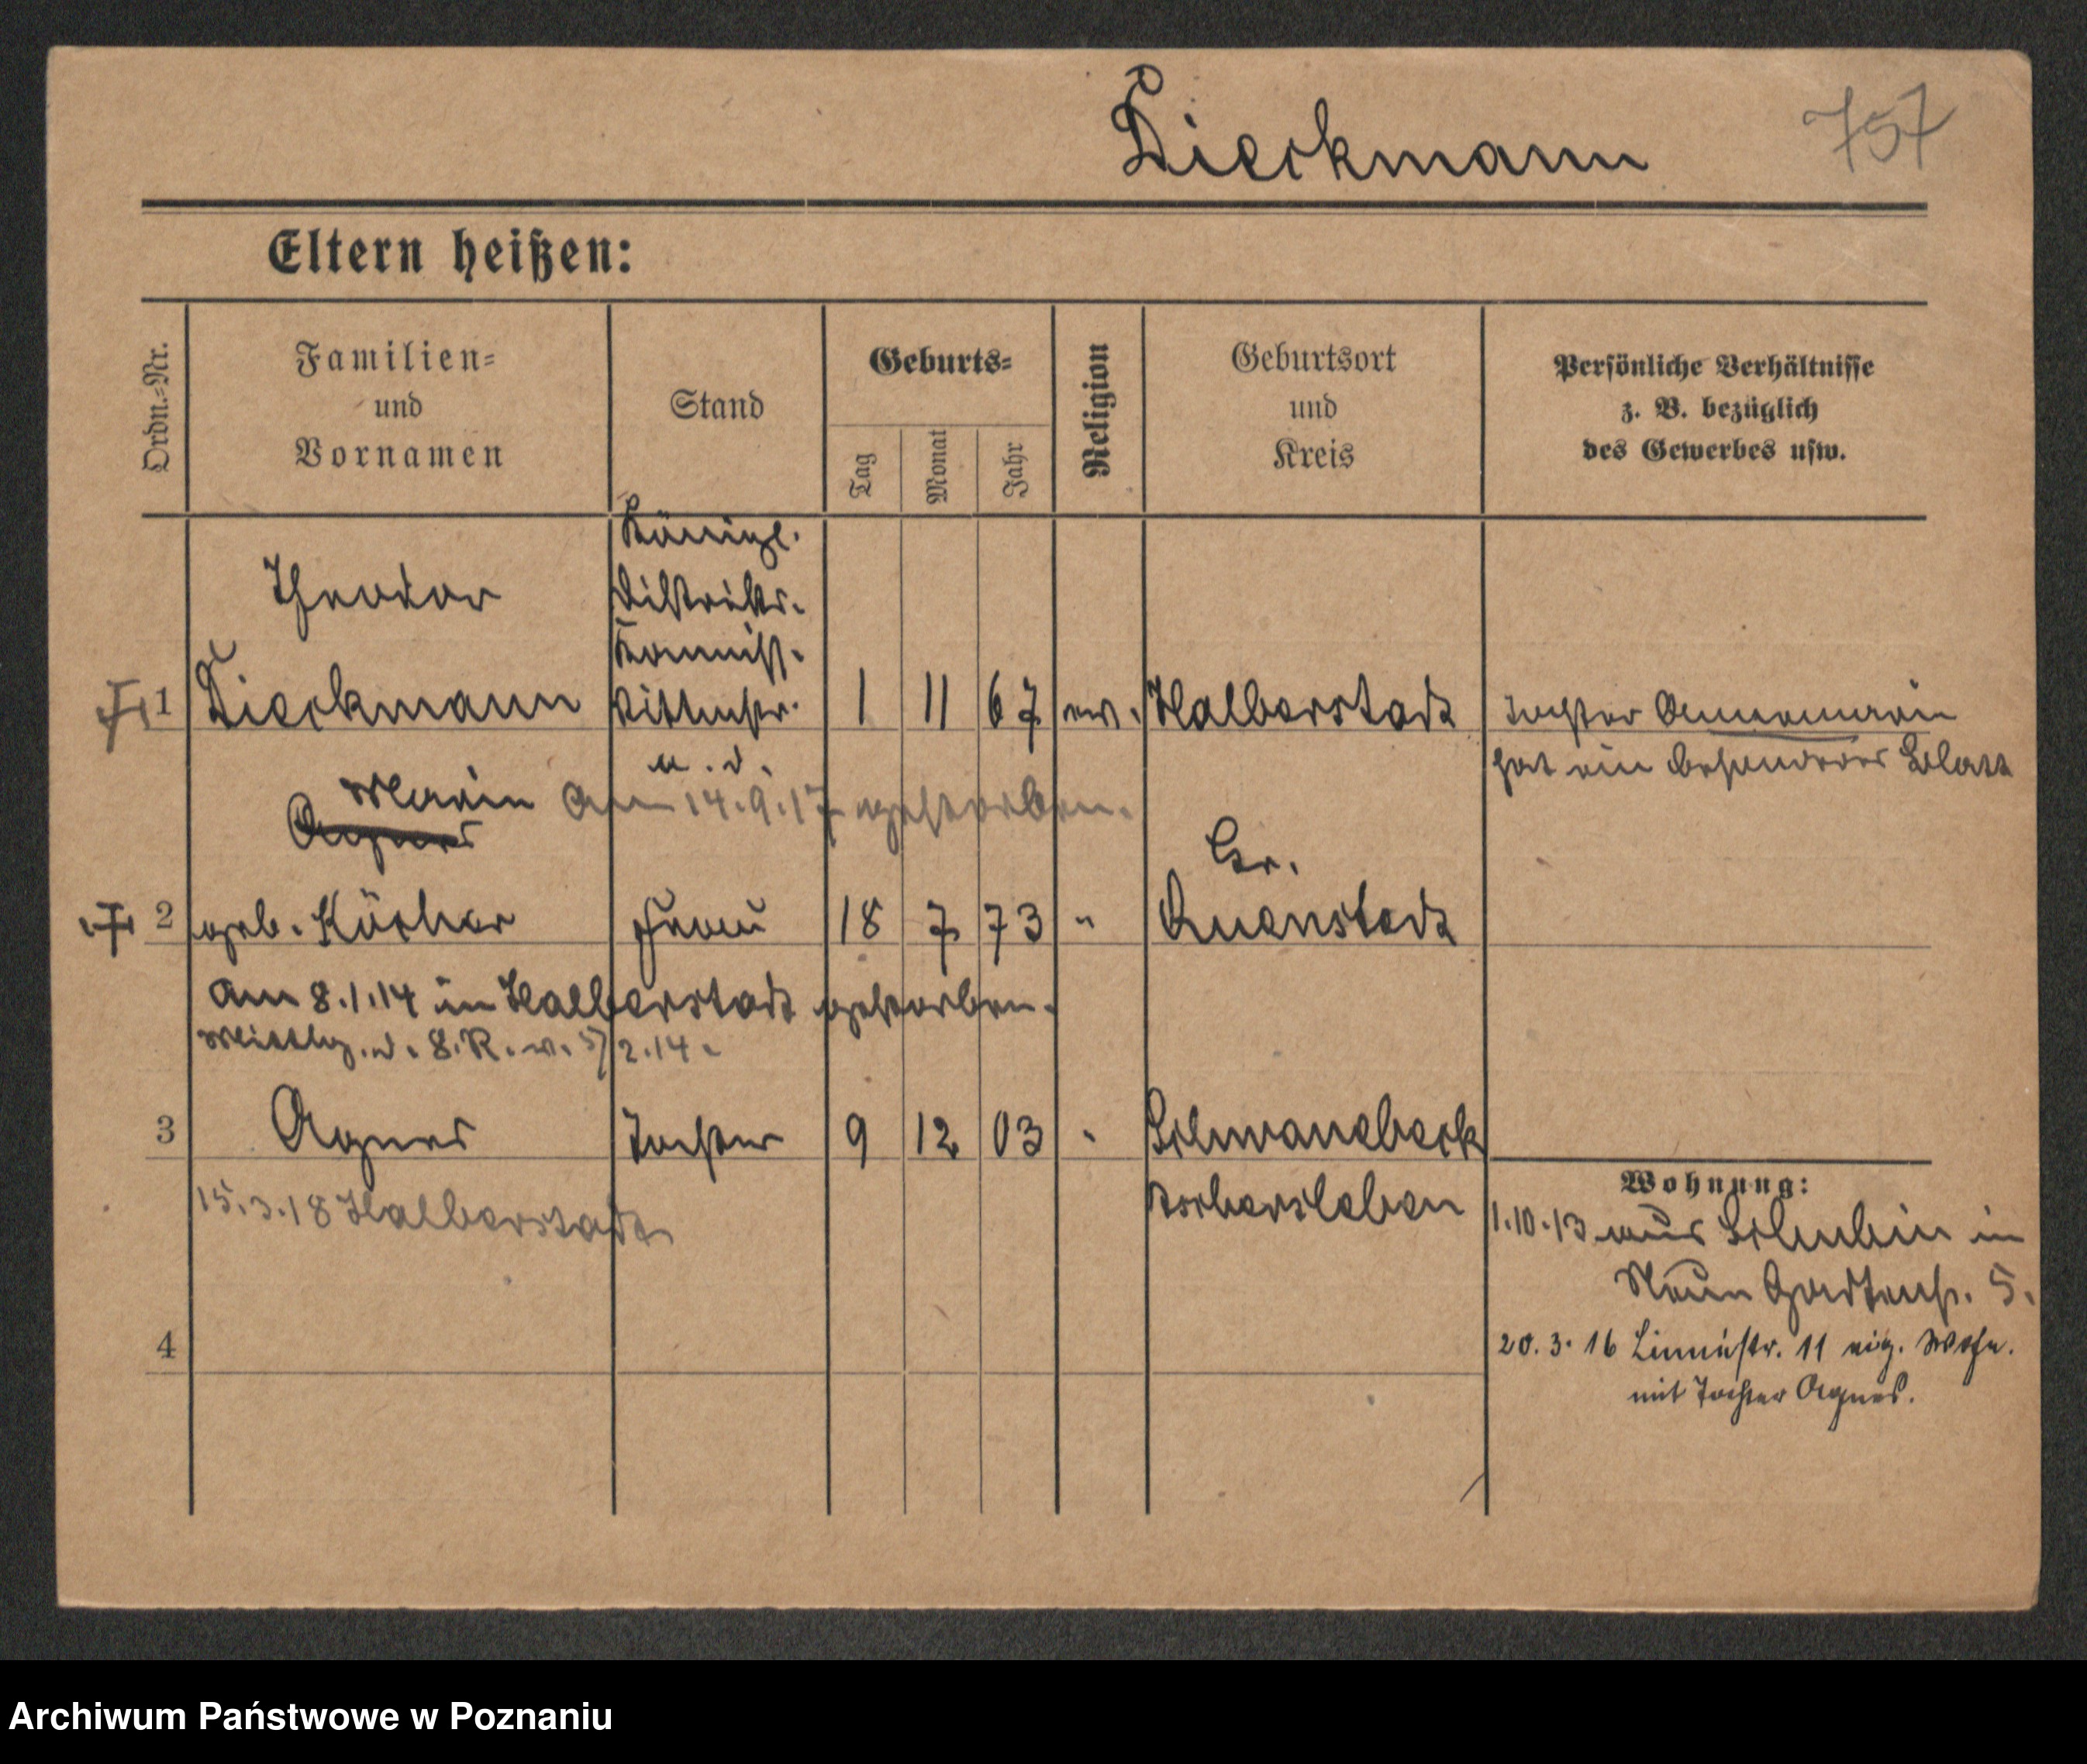 Dieckmann
757
Eltern heißen:
Ordn.-Nr.
Familien-
und
Vornamen
Stand
Geburts-
Tag
Monat
Jahr
Religion
Geburtsort
und
Kreis
Persönliche Verhältnisse
z. B. bezüglich
des Gewerbes usw.
Königl.
Theodor
Distrikts-
Kommiss.
1 Dieckmann Rittmstr. 1 11 67 ev. Halberstadt Tochter Annemarie
a. D. hat ein besonderes Blatt
Marie am 14.9.17 gestorben.
Agnes
Gr.
2 geb. Köcher Frau 18 7 73 " Quenstedt
am 8.1.14 in Halberstadt gestorben.
Mittlg. d. 8. R. v. 5/2.14.
3 Agnes Tochter 9 12 03 " Schwanebeck
Wohnung:
15.3.18 Halberstadt
Oschersleben
1.10.13 aus Schubin in
Gartenstr. 5.
4
20.3.16 Linnéstr. 11 eig. Wohn.
mit Tochter Agnes.
Archiwum Państwowe w Poznaniu